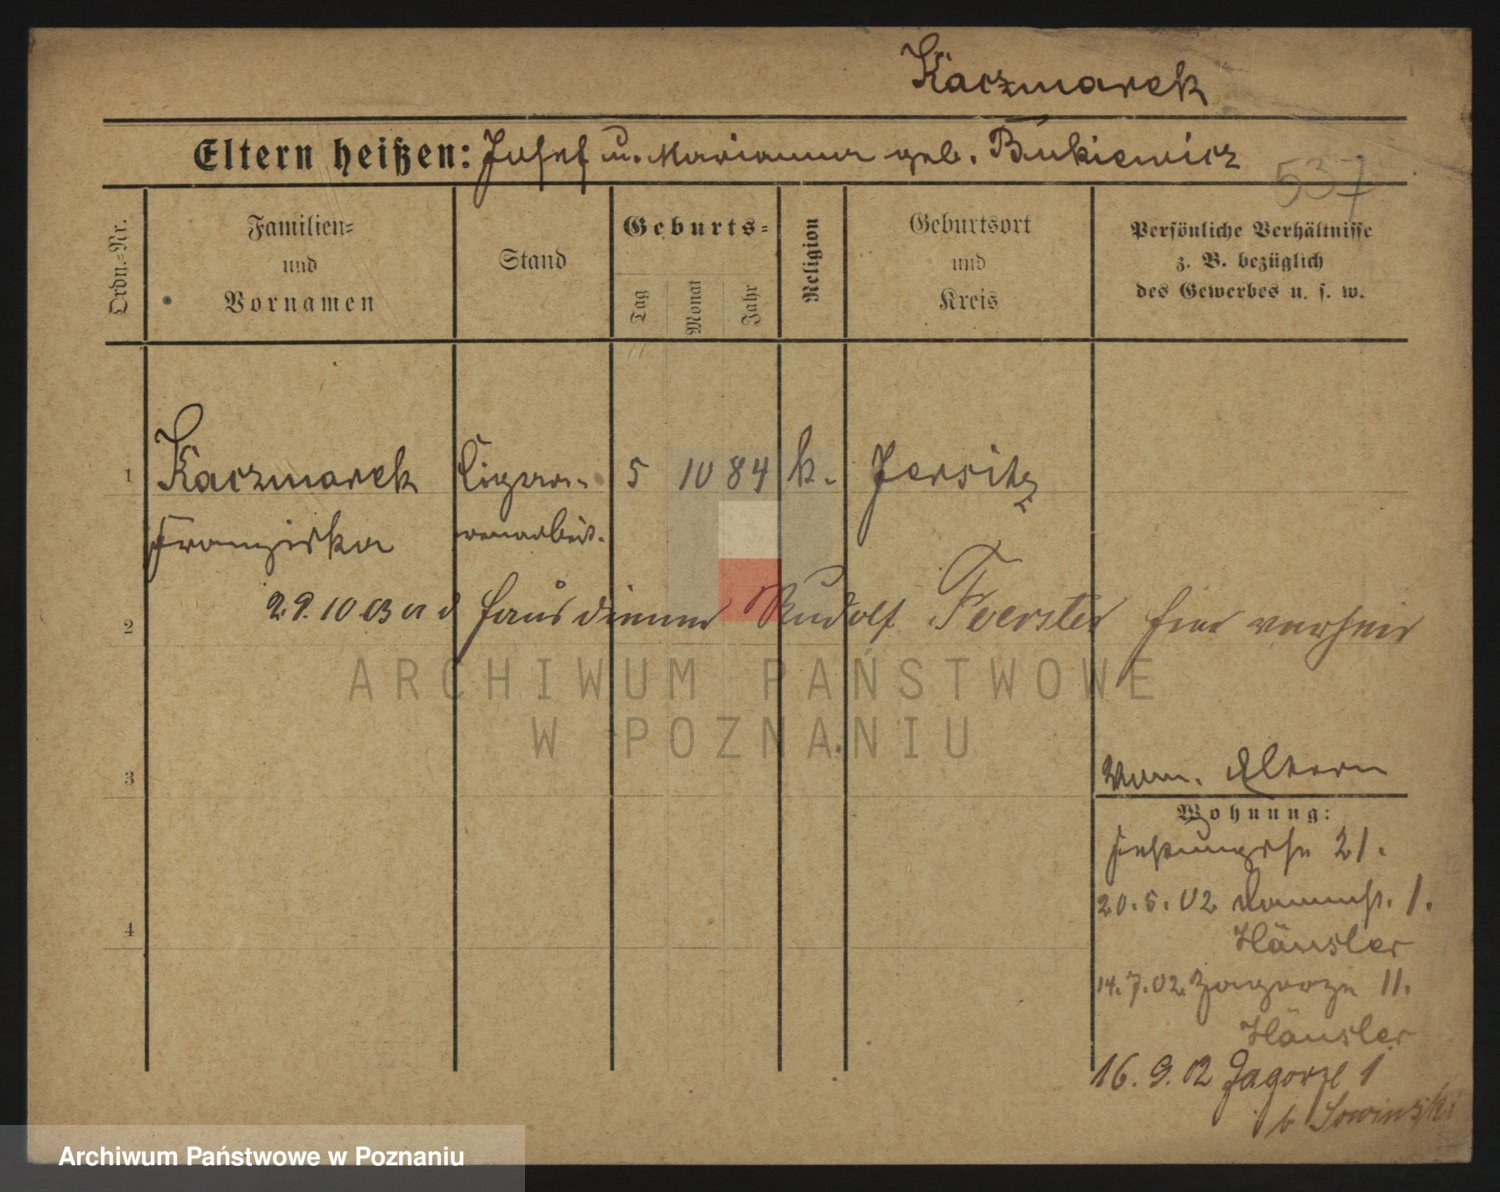 Kaczmarek
Eltern heißen: Josef u. Marianna geb. Bukiewicz
537
Ordn.-Nr.
Familien-
und
Vornamen
Stand
Geburts-
Tag
Monat
Jahr
Religion
Geburtsort
und
Kreis
Persönliche Verhältnisse
z. B. bezüglich
des Gewerbes u. s. w.
1 Kaczmarek Cigar- 5 10 84 k. Jersitz
Franziska renarbeit.
2 29.10.03 a d Hausdiener Rudolf Foerster hier verheir
ARCHIWUM PAŃSTWOWE
W POZNANIU
3
Eltern
Wohnung:
21.
4
20.5.02 1.
Häusler
14.7.02 Zagorze 11.
Häusler
16.9.02 Zagorze 1
b Sowinski
Archiwum Państwowe w Poznaniu